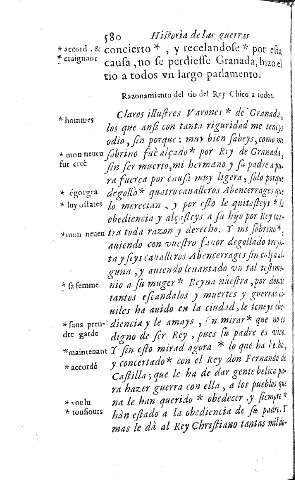 580 Historia de las guerras
* acord. & concierto *, y recelandose * por esta
* craignant causa, no se perdiesse Granada, hizo el
tio à todos vn largo parlamento.
Razonamiento del tio del Rey Chico a todos.
* hommes Claros illustres Varones * de Granada,
los que ansi con tanta riguridad me teneys
odio, sin porque: muy bien sabeys, como mi
* mon neveu sobrino fue alçado * por Rey de Granada,
fut creé sin ser muerto, mi hermano y su padre a pu
ra fuerça por causa muy ligera, solo porque
* égorgea degollò * quatro cavalleros Abencerrages que
* luy ostates lo merecian, y por esto le quitasteys * la
obediencia y alçasteys a su hijo por Rey con
* mon neveu tra toda razon y derecho. Y mi sobrino *,
aviendo con vuestro favor degollado treyn
ta y seys cavalleros Abencerrages sin culpa al
guna, y aviendo levantado vn tal testimo
* sa femme nio a su muger * Reyna nuestra, por donde
tantos escandalos y muertes y guerras ci
viles ha avido en la ciudad, le teneys obe
* sans pren- diencia y le amays, sin mirar * que no es
dre garde digno de ser Rey, pues su padre es vivo.
* maintenant Y sin esto mirad agora * lo que ha hecho,
* accordé y concertado * con el Rey don Fernando de
Castilla; que le ha de dar gente belica pa
ra hazer guerra con ella, a los pueblos que
* voulu no le han querido * obedecer, y siempre *
* tousiours hàn estado a la obediencia de su padre. Y
mas le dà al Rey Christiano tantas mil